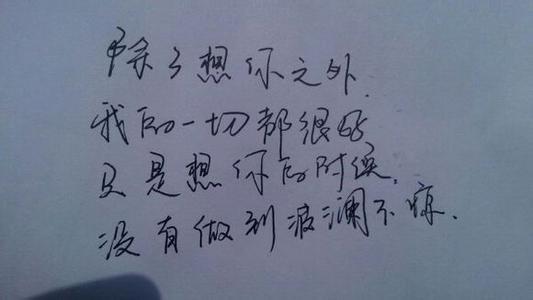 除了想你之外
我的一切都很好
只是想你的时候,
没有做到波澜不惊.